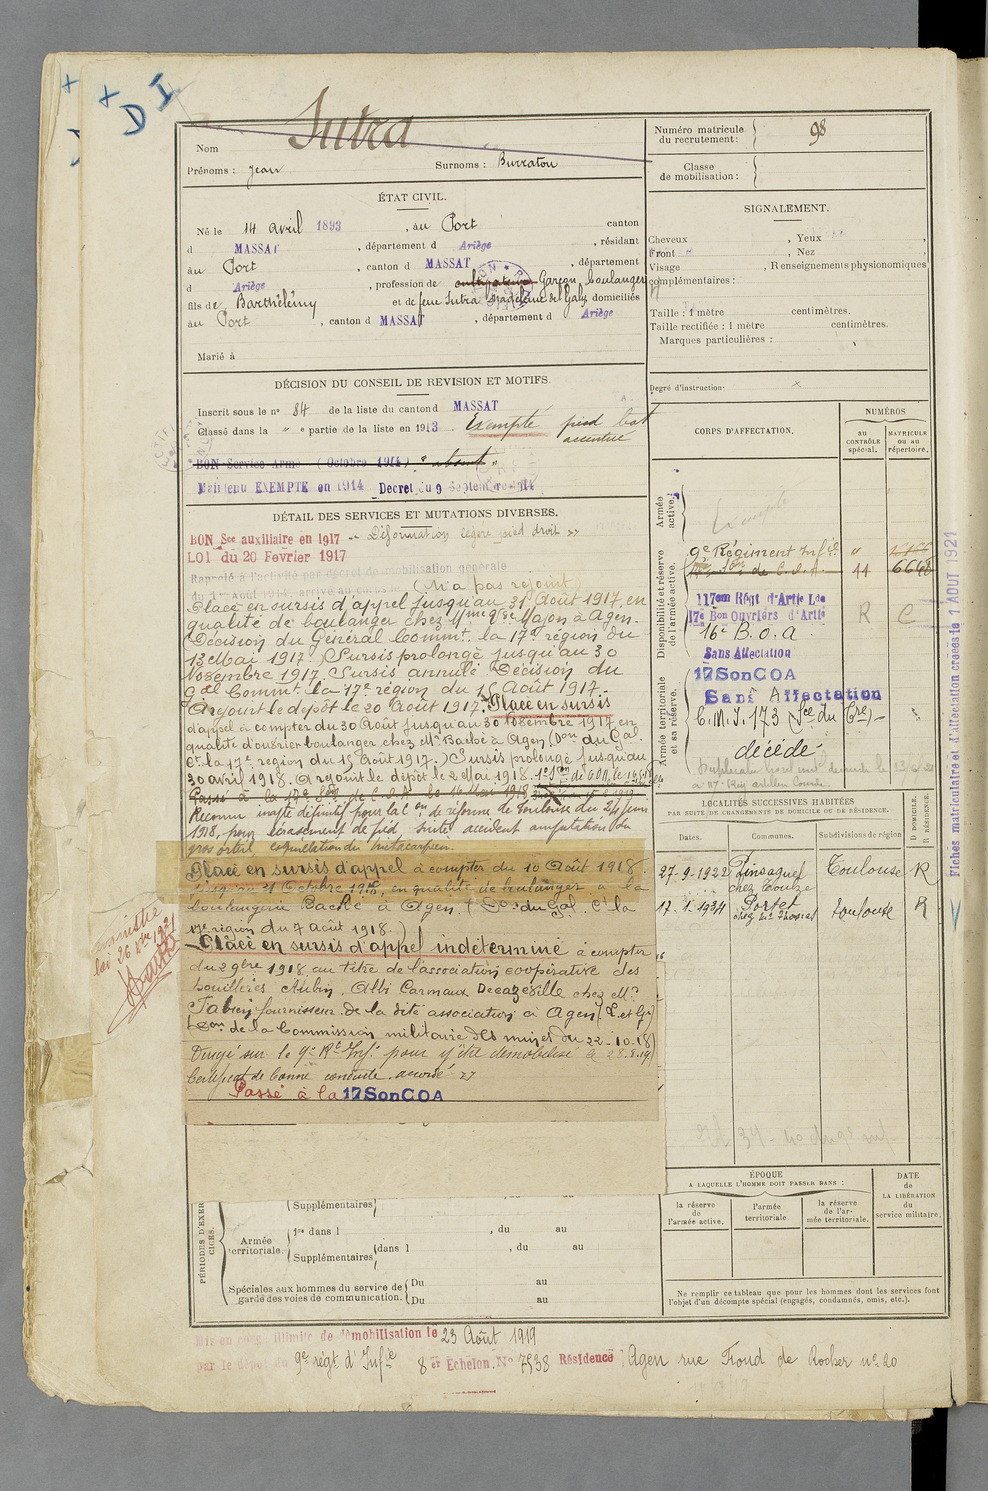 + D I
Nom Sutra
Prénoms : Jean Surnoms : Burraton
ÉTAT CIVIL.
Né le 14 avril 1893, au Port canton
d MASSAT, département d Ariège, résidant
au Port, canton d MASSAT, département
d Ariège, profession de cultivateur Garçon boulanger
fils de Barthélémy et de feue Sutra Madeleine de Galy domiciliés
au Port, canton d MASSAT, département d Ariège
Marié à
DÉCISION DU CONSEIL DE REVISION ET MOTIFS.
Inscrit sous le n° 84 de la liste du canton d MASSAT
Classé dans la " e partie de la liste en 1913. Exempté pied bot
accentué
BON Service Armé (Octobre 1914) "absent"
Maintenu EXEMPTÉ en 1914 Decret du 9 Septembre 1914
DÉTAIL DES SERVICES ET MUTATIONS DIVERSES.
BON Sce auxiliaire en 1917 -« Déformation légère pied droit »
LOI du 20 Fevrier 1917
Rappelé à l'activité par décret de mobilisation générale
du 1er Août 1914, arrivé au corps (N'a pas rejoint)
Placé en sursis d'appel jusqu'au 31 Août 1917, en
qualité de boulanger chez Mme Vve Majon à Agen.
(Décision du Général Commt. la 17e région du
13 Mai 1917.) Sursis prolongé jusqu'au 30
Novembre 1917. Sursis annulé Décision du
Gal Commt. la 17e région du 15 Août 1917.-
A rejoint le dépôt le 20 Août 1917. Placé en sursis
d'appel à compter du 30 Août jusqu'au 30 Novembre 1917, en
qualité d'ouvrier boulanger chez Mr Baché à Agen. (Don du Gal
Ct la 17e région du 15 Août 1917.) Sursis prolongé jusqu'au
30 avril 1918. A rejoint le dépôt le 2 Mai 1918.
Passé à la 17e Son de C.O.A. le 16 Mai 1918
Reconnu inapte définitif pour la Con de réforme de Toulouse du 24 Juin
1918, pour écrasement de pied, suite accident amputation du
gros orteil,
Placé en sursis d'appel à compter du 10 Août 1918
jusqu'au 31 Octobre 1918, en qualité de boulanger à la
boulangerie Baché à Agen. (Don du Gal. Ct la
17e région du 7 Août 1918.)
Placé en sursis d'appel indéterminé à compter
du 2 9bre 1918, au titre de l'association coopérative des
houillères Aubin, Albi Carmaux Decazeville chez Mr
Fabien fournisseur de la dite association à Agen (L. et G.)
(Don de la Commission militaire des mines du 22-10-18)
Dirigé sur le 9e Rt Inf. pour y être démobilisé le 28.8.19
Certificat de bonne conduite accordé »
Passé à la 17 Son COA
Amnistié
loi 26 Xbre 1921
Numéro matricule
du recrutement : 98
Classe
de mobilisation :
SIGNALEMENT.
Cheveux , Yeux ,
Front , Nez
Visage , Renseignements physionomiques
complémentaires :
Taille : 1 mètre centimètres.
Taille rectifiée : 1 mètre centimètres.
Marques particulières :
Degré d'instruction : x
CORPS D'AFFECTATION.
NUMÉROS
au
CONTRÔLE
spécial.
MATRICULE
ou au
répertoire.
Armée
active.
Exempté
Disponibilité et réserve
de l'armée active.
9e Régiment Infie "
17e Son de C.O.A. 44 6648
117em Régt d'Artie Lde
17e Bon Ouvriers d'Artie R C
16e B.O.A.
Sans Affectation
Armée territoriale
et sa réserve.
17 Son COA
Sans Affectation
C.M.I. 173 (Sce du Tre)-
décédé-
Fiches matriculaire et d'affectation créées le 1 AOUT 1921
LOCALITÉS SUCCESSIVES HABITÉES
PAR SUITE DE CHANGEMENTS DE DOMICILE OU DE RÉSIDENCE.
Dates. Communes. Subdivisions de région D DOMICILE. R RÉSIDENCE.
27-9-1922 Pinsaguel Toulouse R
17.1.1934 Portet Toulouse R
ÉPOQUE
A LAQUELLE L'HOMME DOIT PASSER DANS :
la réserve
de
l'armée active.
l'armée
territoriale.
la réserve
de l'ar-
mée territoriale.
DATE
de
LA LIBÉRATION
du
service militaire.
Ne remplir ce tableau que pour les hommes dont les services font
l'objet d'un décompte spécial (engagés, condamnés, omis, etc.).
PÉRIODES D'EXERCICES.
Supplémentaires
Armée
territoriale.
1re dans l , du au
Supplémentaires dans l , du au
Spéciales aux hommes du service de
garde des voies de communication.
Du au
Du au
Mis en congé illimité de démobilisation le 23 Août 1919
par le dépôt du 9e régt d'Infie 8er Echelon. No 7538 Résidence : Agen rue Fond de Rocher no 20